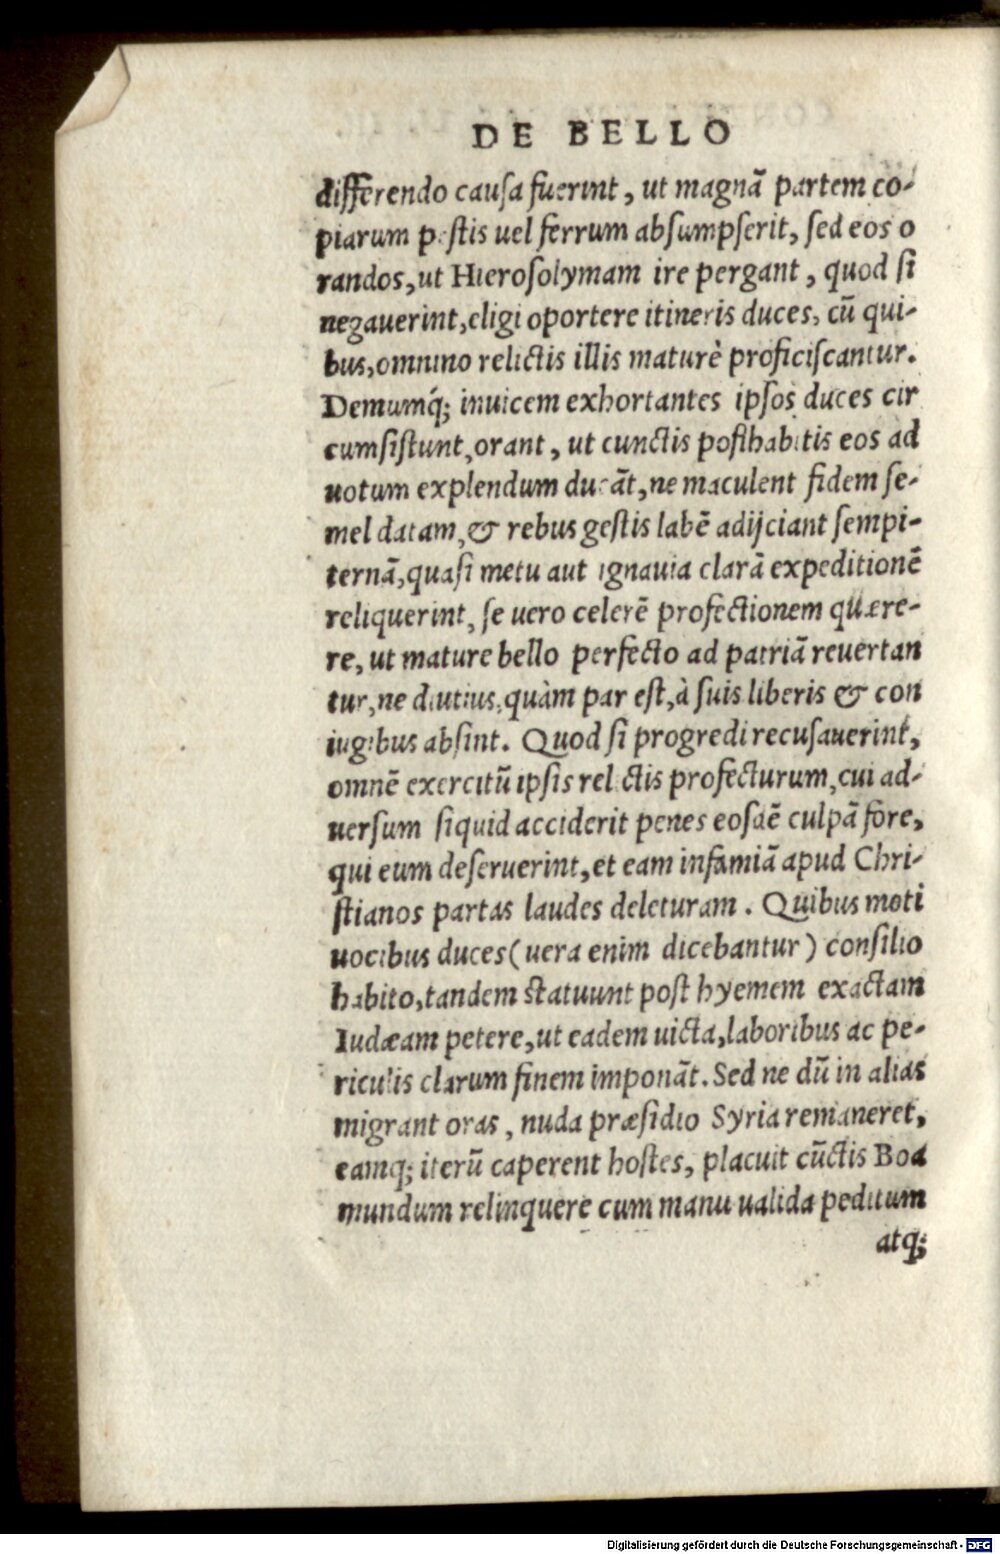 DE BELLO
differendo causa fuerint, ut magnã partem co-
piarum pestis uel ferrum absumpserit, sed eos o
randos, ut Hierosolymam ire pergant, quod si
negauerint, eligi oportere itineris duces, cũ qui-
bus, omnino relictis illis maturè proficiscantur.
Demumq́; inuicem exhortantes ipsos duces cir
cumsistunt, orant, ut cunctis posthabitis eos ad
uotum explendum ducãt, ne maculent fidem se-
mel datam, & rebus gestis labẽ adijciant sempi-
ternã, quasi metu aut ignauia clarã expeditionẽ
reliquerint, se uero celerẽ profectionem quære-
re, ut mature bello perfecto ad patriã reuertan
tur, ne diutius, quàm par est, à suis liberis & con
iugibus absint. Quod si progredi recusauerint,
omnẽ exercitũ ipsis relictis profecturum, cui ad-
uersum siquid acciderit penes eosdẽ culpã fore,
qui eum deseruerint, et eam infamiã apud Chri-
stianos partas laudes deleturam. Quibus moti
uocibus duces (uera enim dicebantur) consilio
habito, tandem statuunt post hyemem exactam
Iudæam petere, ut eadem uicta, laboribus ac pe-
riculis clarum finem imponãt. Sed ne dũ in alias
migrant oras, nuda præsidio Syria remaneret,
eamq; iterũ caperent hostes, placuit cũctis Boa
mundum relinquere cum manu ualida peditum
atq;
Digitalisierung gefördert durch die Deutsche Forschungsgemeinschaft - DFG